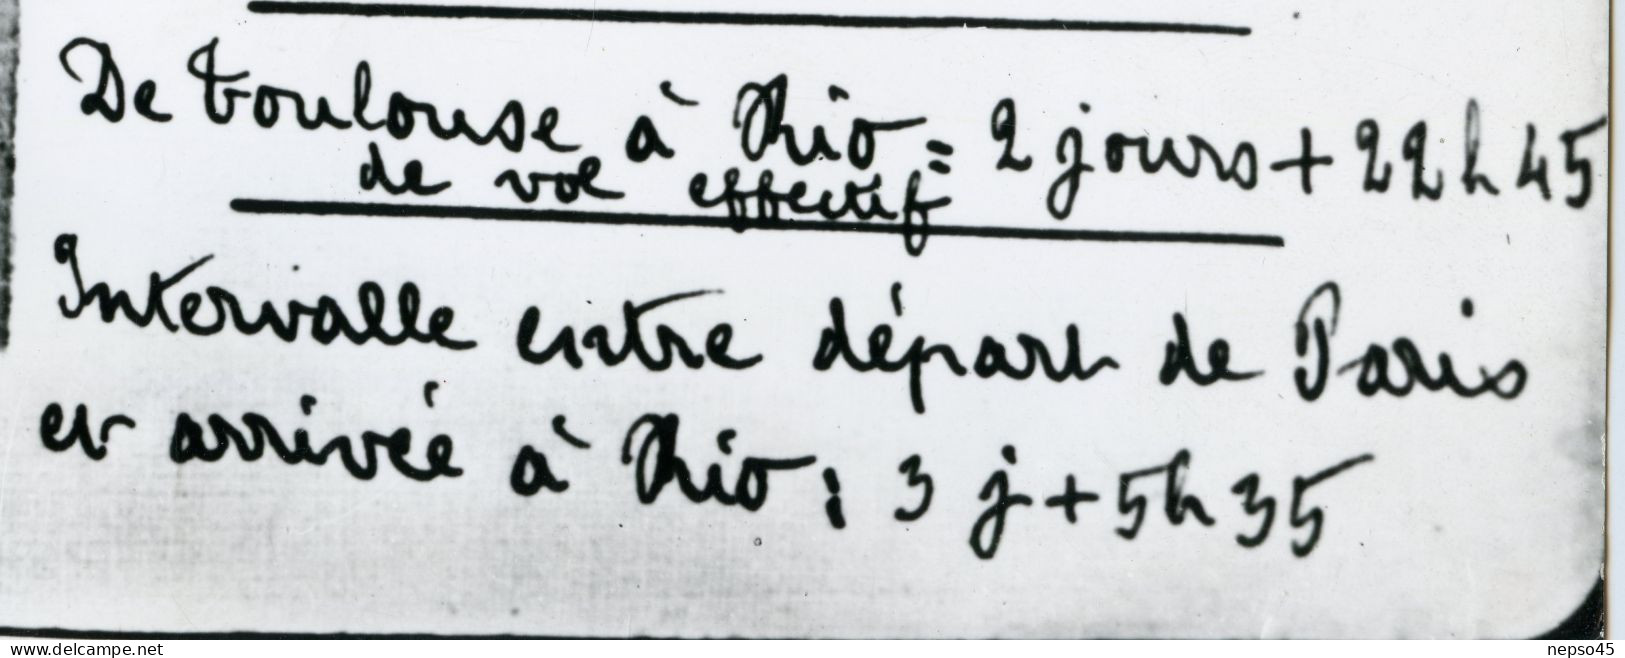 De Toulouse à Rio = 2 jours + 22h45
de vol effectif
Intervalle entre départ de Paris
et arrivée à Rio : 3 j + 5h35
www.delcampe.net
nepso45